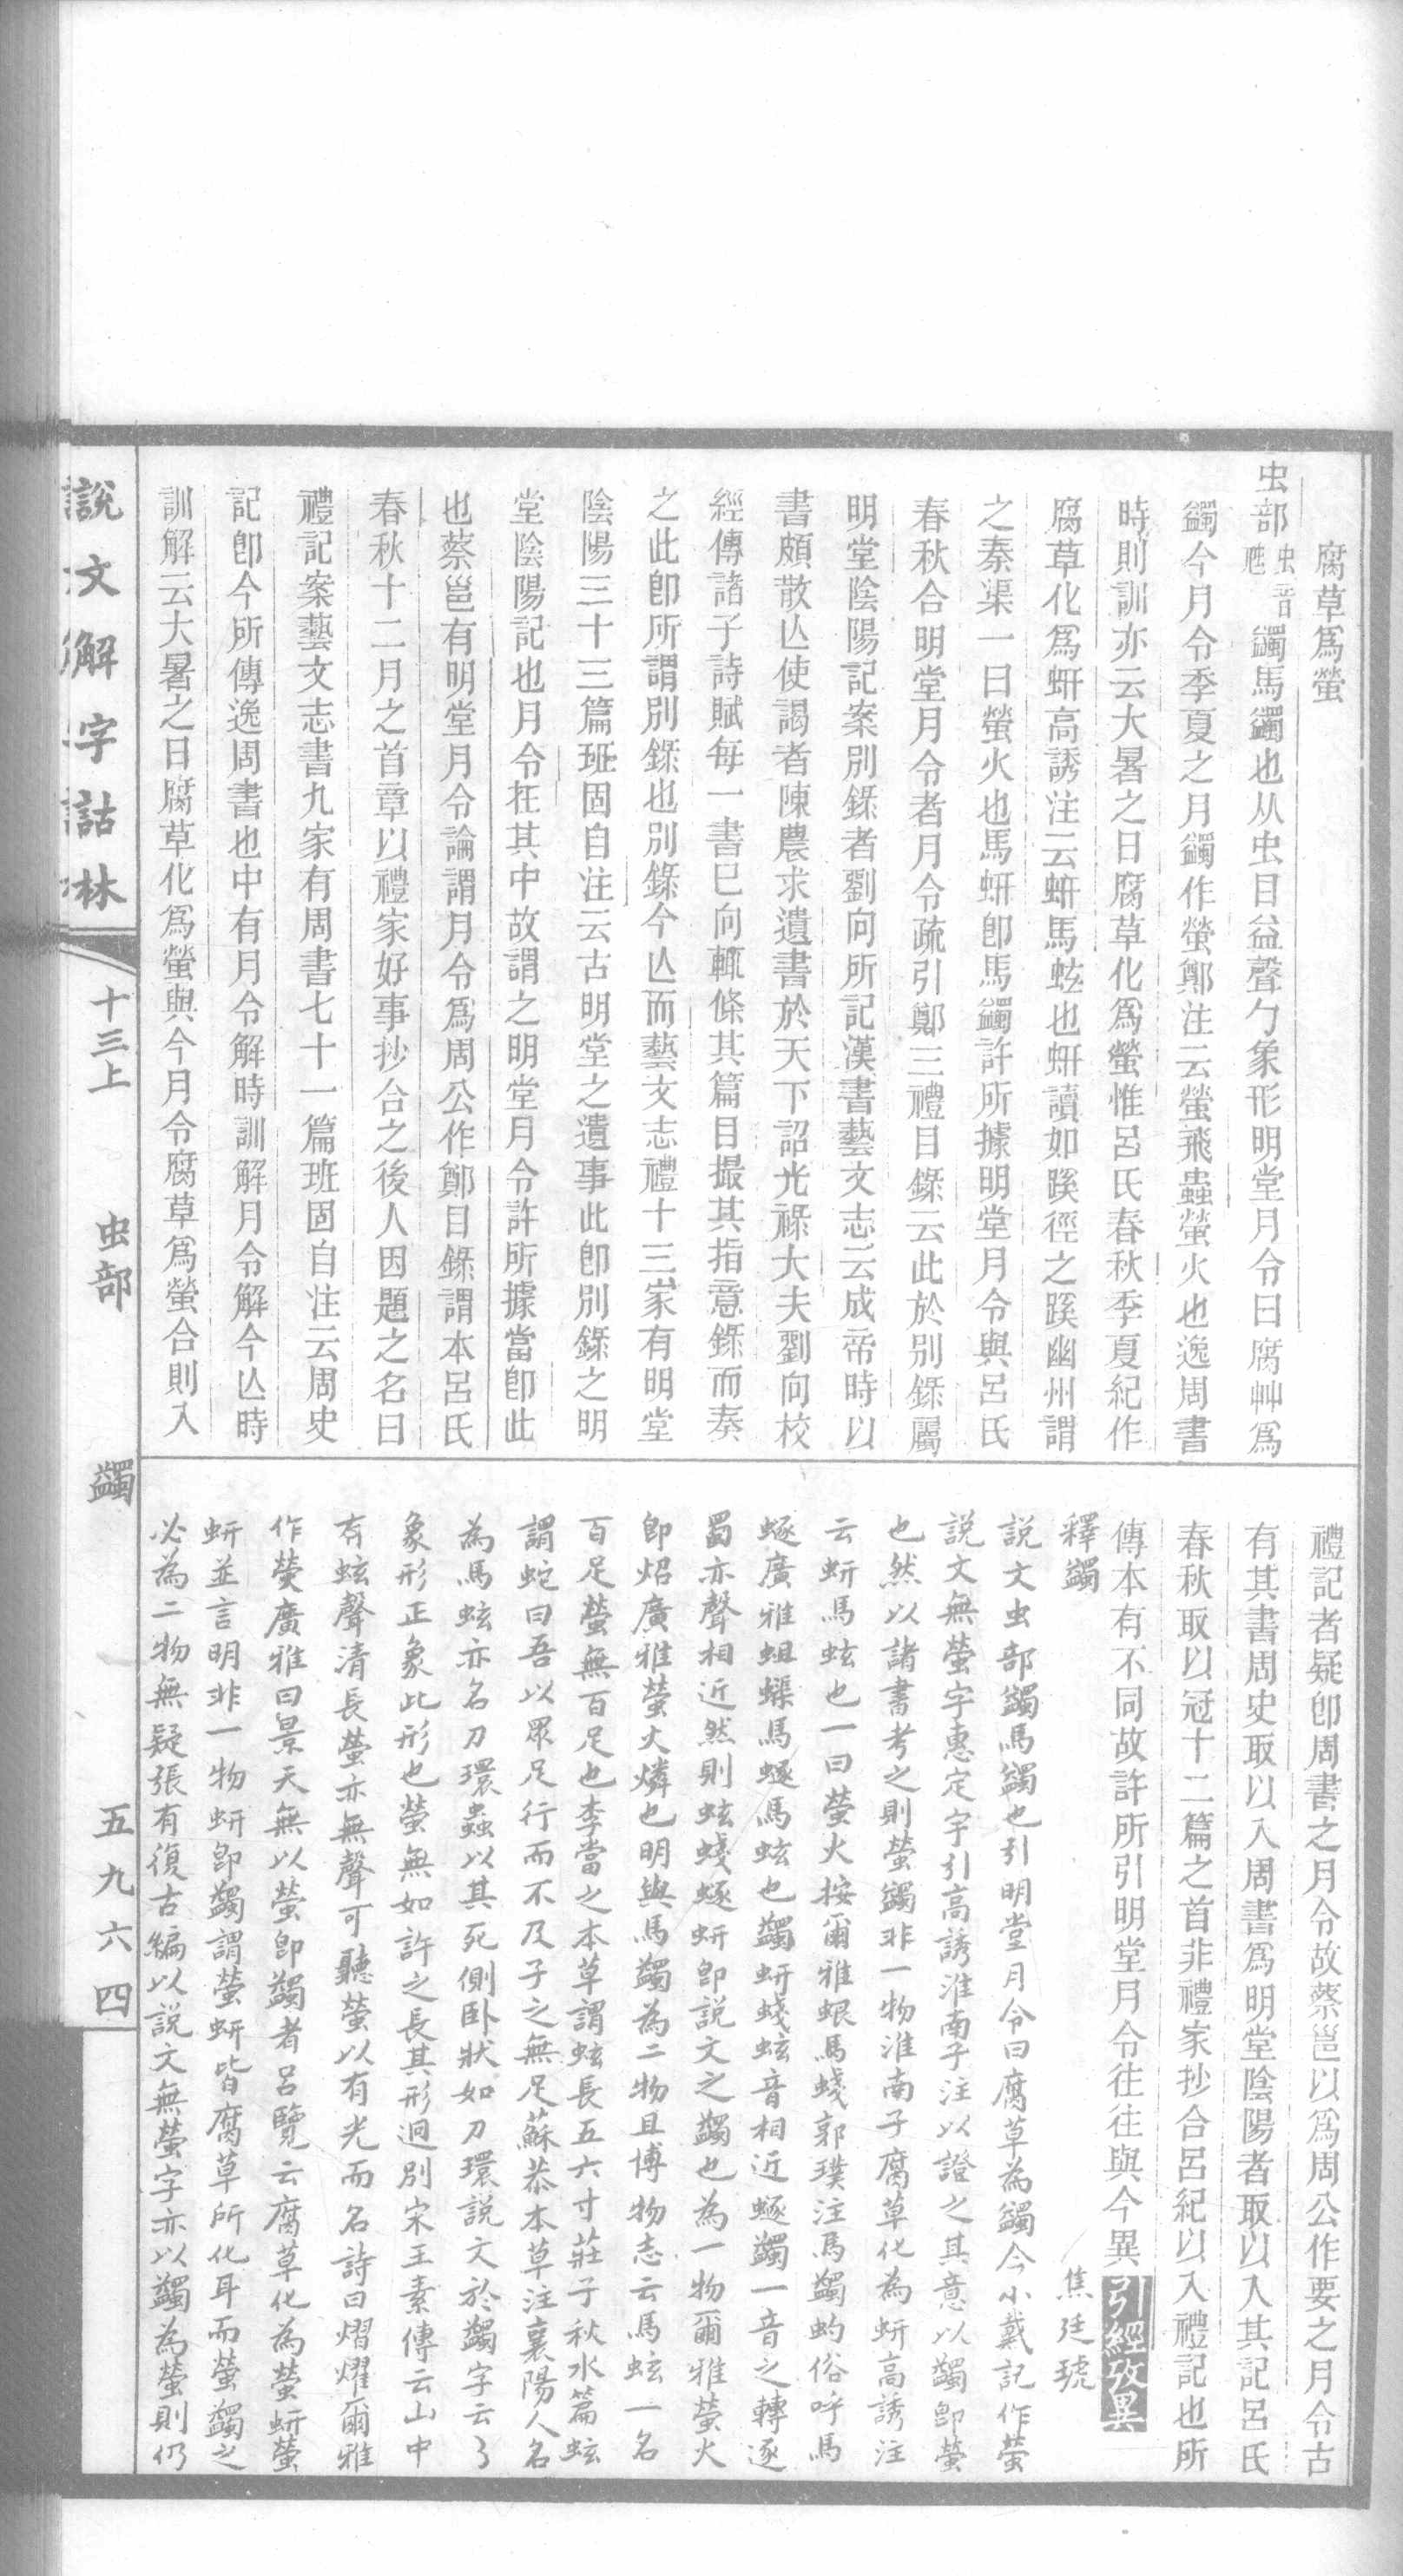 腐草爲螢
虫部虫音虺蠲馬蠲也从虫目益聲勹象形明堂月令曰腐艸爲
蠲今月令季夏之月蠲作螢鄭注云螢飛蟲螢火也逸周書
時則訓亦云大暑之日腐草化爲螢惟呂氏春秋季夏紀作
腐草化爲蚈高誘注云蚈馬蚿也蚈讀如蹊徑之蹊幽州謂
之秦渠一曰螢火也馬蚈卽馬蠲許所據明堂月令與呂氏
春秋合明堂月令者月令疏引鄭三禮目錄云此於別錄屬
明堂陰陽記案別錄者劉向所記漢書藝文志云成帝時以
書頗散亾使謁者陳農求遺書於天下詔光祿大夫劉向校
經傳諸子詩賦每一書已向輒條其篇目撮其指意錄而奏
之此卽所謂別錄也別錄今亾而藝文志禮十三家有明堂
陰陽三十三篇班固自注云古明堂之遺事此卽別錄之明
堂陰陽記也月令在其中故謂之明堂月令許所據當卽此
也蔡邕有明堂月令論謂月令爲周公作鄭目錄謂本呂氏
春秋十二月之首章以禮家好事抄合之後人因題之名曰
禮記案藝文志書九家有周書七十一篇班固自注云周史
記卽今所傳逸周書也中有月令解時訓解月令解今亾時
訓解云大暑之日腐草化爲螢與今月令腐草爲螢合則入
禮記者疑卽周書之月令故蔡邕以爲周公作要之月令古
有其書周史取以入周書爲明堂陰陽者取以入其記呂氏
春秋取以冠十二篇之首非禮家抄合呂紀以入禮記也所
傳本有不同故許所引明堂月令往往與今異引經攷異
釋蠲 焦廷琥
說文虫部蠲馬蠲也引明堂月令曰腐草為蠲今小戴記作螢
說文無螢字惠定宇引高誘淮南子注以證之其意以蠲卽螢
也然以諸書考之則螢蠲非一物淮南子腐草化為蚈高誘注
云蚈馬蚿也一曰螢火按爾雅蛝馬蝬郭璞注馬蠲蚐俗呼馬
蝬廣雅蛆蟝馬蝬馬蚿也蠲蚈蝬蚿音相近蝬蠲一音之轉逐
蜀亦聲相近然則蚿蝬蝬蚈卽說文之蠲也為一物爾雅螢火
卽炤廣雅螢火燐也明與馬蠲為二物且博物志云馬蚿一名
百足螢無百足也李當之本草謂蚿長五六寸莊子秋水篇蚿
謂蛇曰吾以眾足行而不及子之無足蘇恭本草注襄陽人名
為馬蚿亦名刀環蟲以其死側卧狀如刀環說文於蠲字云勹
象形正象此形也螢無如許之長其形迥別宋王素傳云山中
有蚿聲清長螢亦無聲可聽螢以有光而名詩曰熠燿爾雅
作熒廣雅曰景天無以螢卽蠲者呂覽云腐草化為螢蚈螢
蚈並言明非一物蚈卽蠲謂螢蚈皆腐草所化耳而螢蠲之
必為二物無疑張有復古編以說文無螢字亦以蠲為螢則仍
說文解字詁林 十三上 虫部 蠲 五九六四